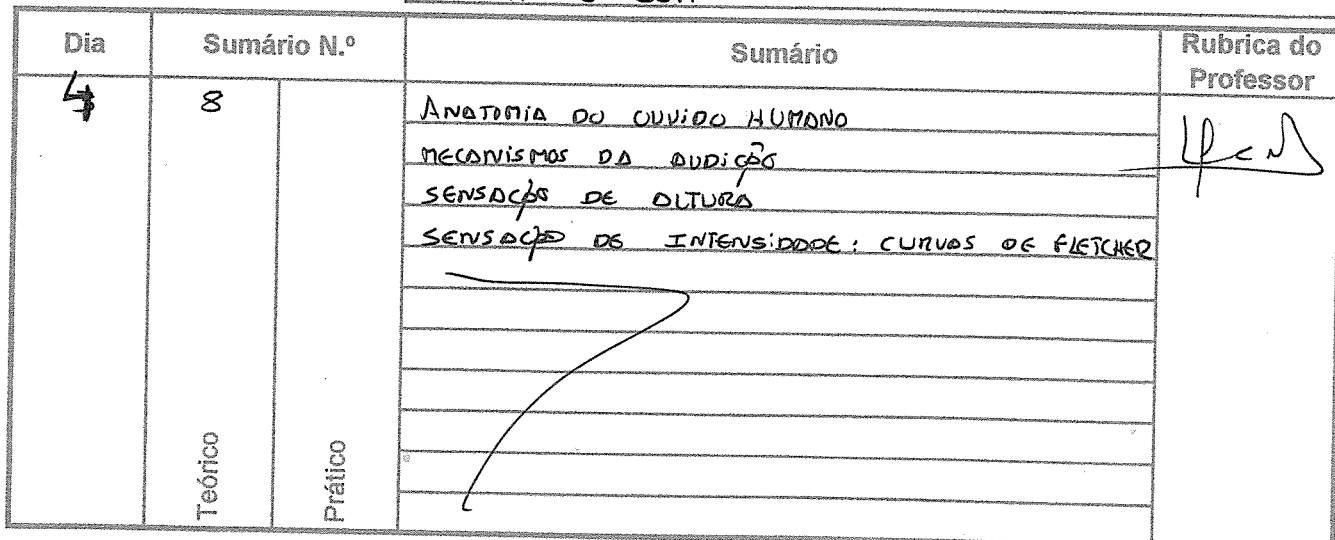 Dia Sumário N.º Sumário Rubrica do Professor
4 8
ANATOMIA DO OUVIDO HUMANO
MECANISMOS DA AUDIÇÃO
SENSAÇÃO DE ALTURA
SENSAÇÃO DE INTENSIDADE: CURVAS DE FLETCHER
Teórico Prático